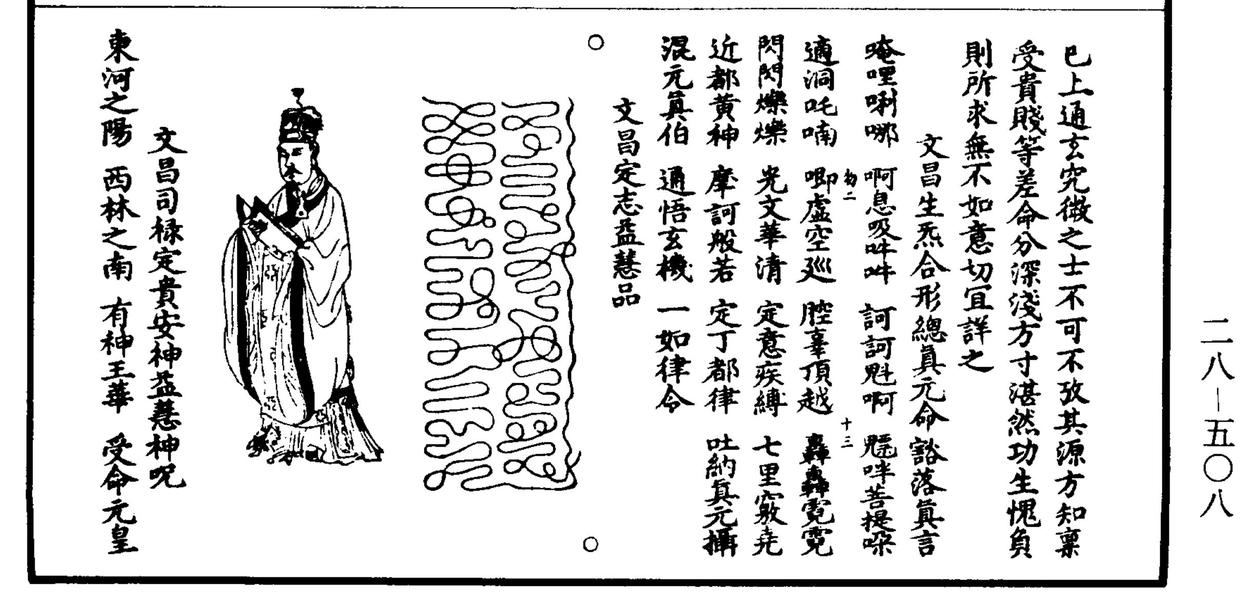 已上通玄究微之士不可不攷其源方知稟
受貴賤等差命分深淺方寸湛然功生愧負
則所求無不如意切宜詳之
文昌生炁合形總眞元命豁落眞言
唵哩唎哪 啊息吸吽吽 訶訶魁啊 吽菩提㗫
十三
適洞吒喃 唧虛空廵 腔辜頂越 轟轟霓霓
閃閃爍爍 光文華清 定意疾縛 七里竅堯
近都黄神 摩訶般若 定丁都律 吐納眞元攝
混元眞伯 通悟玄機 一如律令
文昌定志益慧品
文昌司祿定貴安神益慧神呪
東河之陽 西林之南 有神王華 受命元皇
二八—五〇八